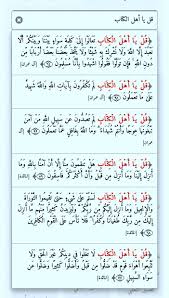 قل يا أهل الكتاب
﴿قُلْ يَا أَهْلَ الْكِتَابِ تَعَالَوْا إِلَىٰ كَلِمَةٍ سَوَاءٍ بَيْنَنَا وَبَيْنَكُمْ أَلَّا
نَعْبُدَ إِلَّا اللَّهَ وَلَا نُشْرِكَ بِهِ شَيْئًا وَلَا يَتَّخِذَ بَعْضُنَا بَعْضًا أَرْبَابًا مِّن
دُونِ اللَّهِ ۚ فَإِن تَوَلَّوْا فَقُولُوا اشْهَدُوا بِأَنَّا مُسْلِمُونَ﴾ [آل عمران]
﴿قُلْ يَا أَهْلَ الْكِتَابِ لِمَ تَكْفُرُونَ بِآيَاتِ اللَّهِ وَاللَّهُ شَهِيدٌ
عَلَىٰ مَا تَعْمَلُونَ﴾ [آل عمران]
﴿قُلْ يَا أَهْلَ الْكِتَابِ لِمَ تَصُدُّونَ عَن سَبِيلِ اللَّهِ مَنْ آمَنَ
تَبْغُونَهَا عِوَجًا وَأَنتُمْ شُهَدَاءُ ۗ وَمَا اللَّهُ بِغَافِلٍ عَمَّا تَعْمَلُونَ﴾
[آل عمران]
﴿قُلْ يَا أَهْلَ الْكِتَابِ هَلْ تَنقِمُونَ مِنَّا إِلَّا أَنْ آمَنَّا بِاللَّهِ وَمَا
أُنزِلَ إِلَيْنَا وَمَا أُنزِلَ مِن قَبْلُ وَأَنَّ أَكْثَرَكُمْ فَاسِقُونَ﴾
﴿قُلْ يَا أَهْلَ الْكِتَابِ لَسْتُمْ عَلَىٰ شَيْءٍ حَتَّىٰ تُقِيمُوا التَّوْرَاةَ
وَالْإِنجِيلَ وَمَا أُنزِلَ إِلَيْكُم مِّن رَّبِّكُمْ ۗ وَلَيَزِيدَنَّ كَثِيرًا مِّنْهُم مَّا أُنزِلَ
إِلَيْكَ مِن رَّبِّكَ طُغْيَانًا وَكُفْرًا ۖ فَلَا تَأْسَ عَلَى الْقَوْمِ الْكَافِرِينَ﴾
﴿قُلْ يَا أَهْلَ الْكِتَابِ لَا تَغْلُوا فِي دِينِكُمْ غَيْرَ الْحَقِّ وَلَا
تَتَّبِعُوا أَهْوَاءَ قَوْمٍ قَدْ ضَلُّوا مِن قَبْلُ وَأَضَلُّوا كَثِيرًا وَضَلُّوا عَن
سَوَاءِ السَّبِيلِ﴾